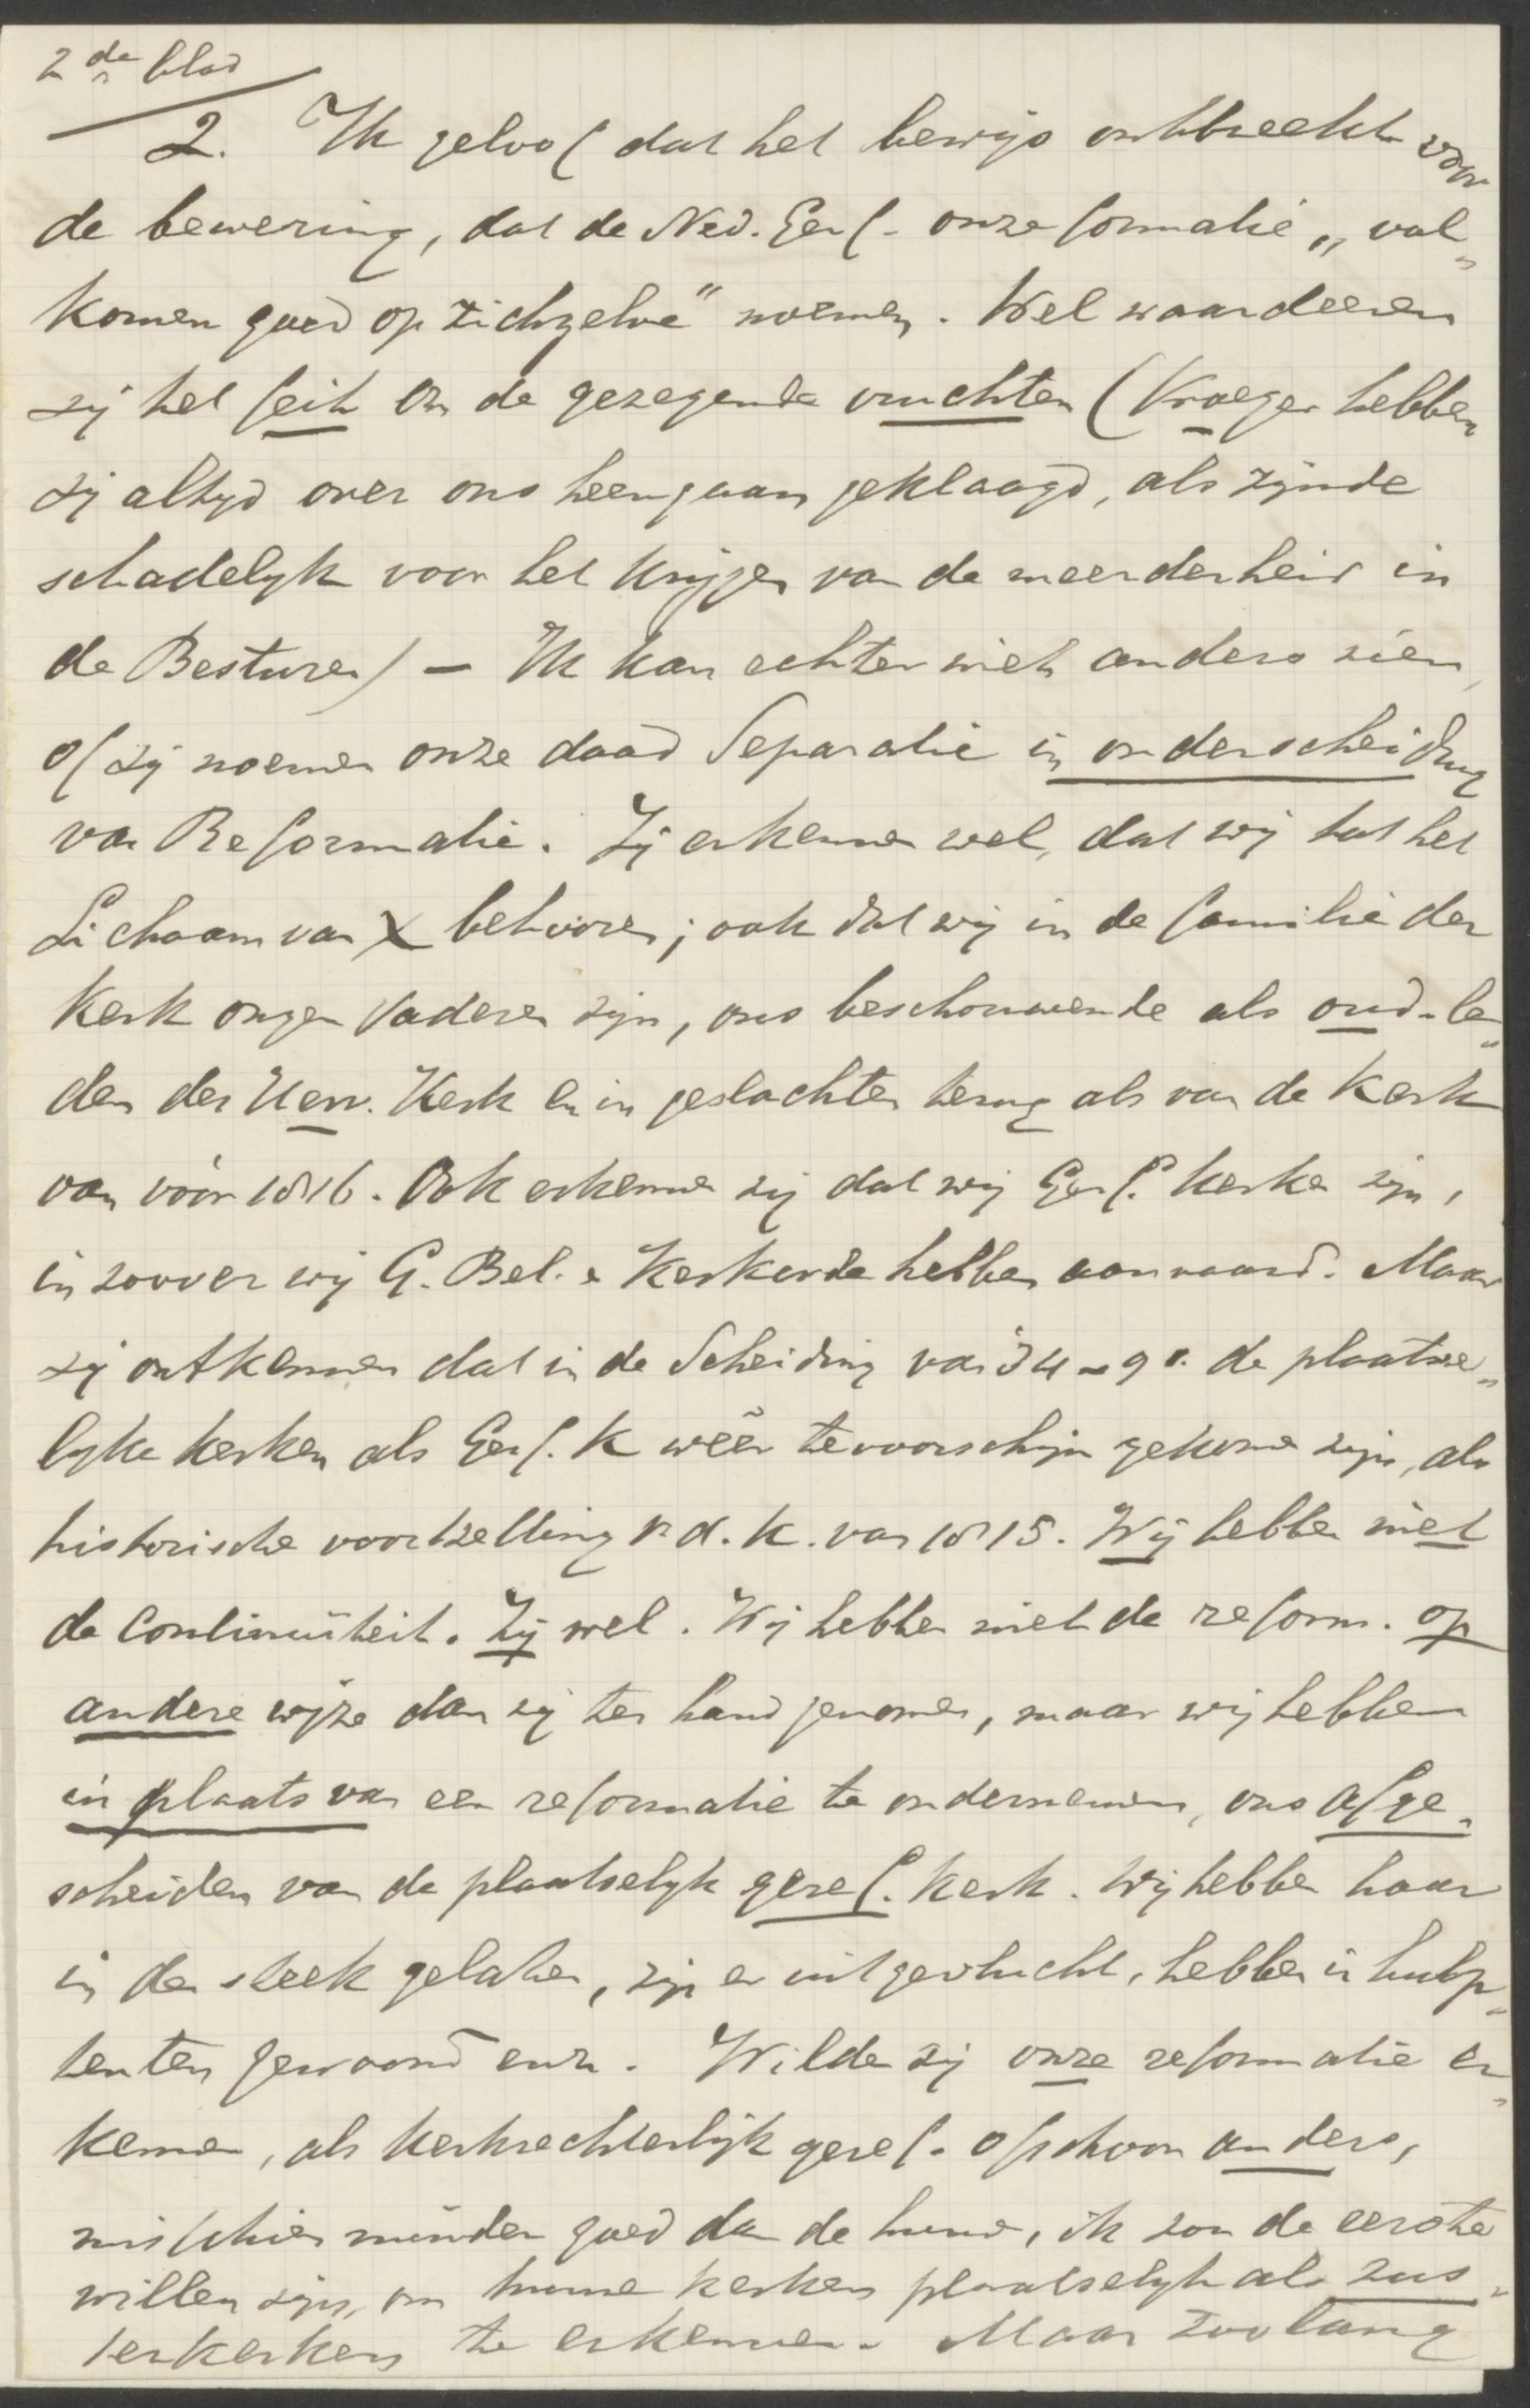 2de blad
2. Ik geloof dat het bewijs ontbreekt voor
de bewering, dat de Ned. Geref. onze formatie „vol„
komen goed op zichzelve" noemen. Wel waardeeren
zij het feit en de gezegende vruchten (Vroeger hebben
zij altyd over ons heengaan geklaagd, als zijnde
schadelyk voor het krijgen van de meerderheid in
de Besturen) — Ik kan echter niet anders zien,
of zij noemen onze daad Separatie in onderscheiding
van Reformatie. Zij erkennen wel, dat wij tot het
Lichaam van X behooren; ook dat wij in de familie der
Kerk onzer Vaderen zijn, ons beschouwende als oud-le„
den der Herv. Kerk en in geslachten terug als van de Kerk
van vóór 1816. Ook erkennen zij dat wij Geref. kerken zijn,
in zoover wij G. Bel. & Kerkorde hebben aanvaard. Maar
zij ontkennen dat in de Scheiding van 34 de plaatse„
lyke kerken als Geref. K wéér tevoorschijn gekomen zijn, als
historische voortzetting v. d. K. van 1815. Wij hebben niet
de Continuïteit. Zij wel. Wij hebben niet de reform. op
andere wijze dan zij ter hand genomen, maar wij hebben
in plaats van een reformatie te ondernemen, ons afge„
scheiden van de plaatselyk geref. kerk. Wij hebben haar
in den steek gelaten, zijn er uitgevlucht, hebben in hulp„
tenten gewoond enz. Wilden zij onze reformatie er„
kennen, als kerkrechterlijk geref. ofschoon anders,
misschien minder goed dan de hunne, ik zou de eerste
willen zijn, om hunne kerken plaatselyk als zus„
terkerken te erkennen. Maar zoolang